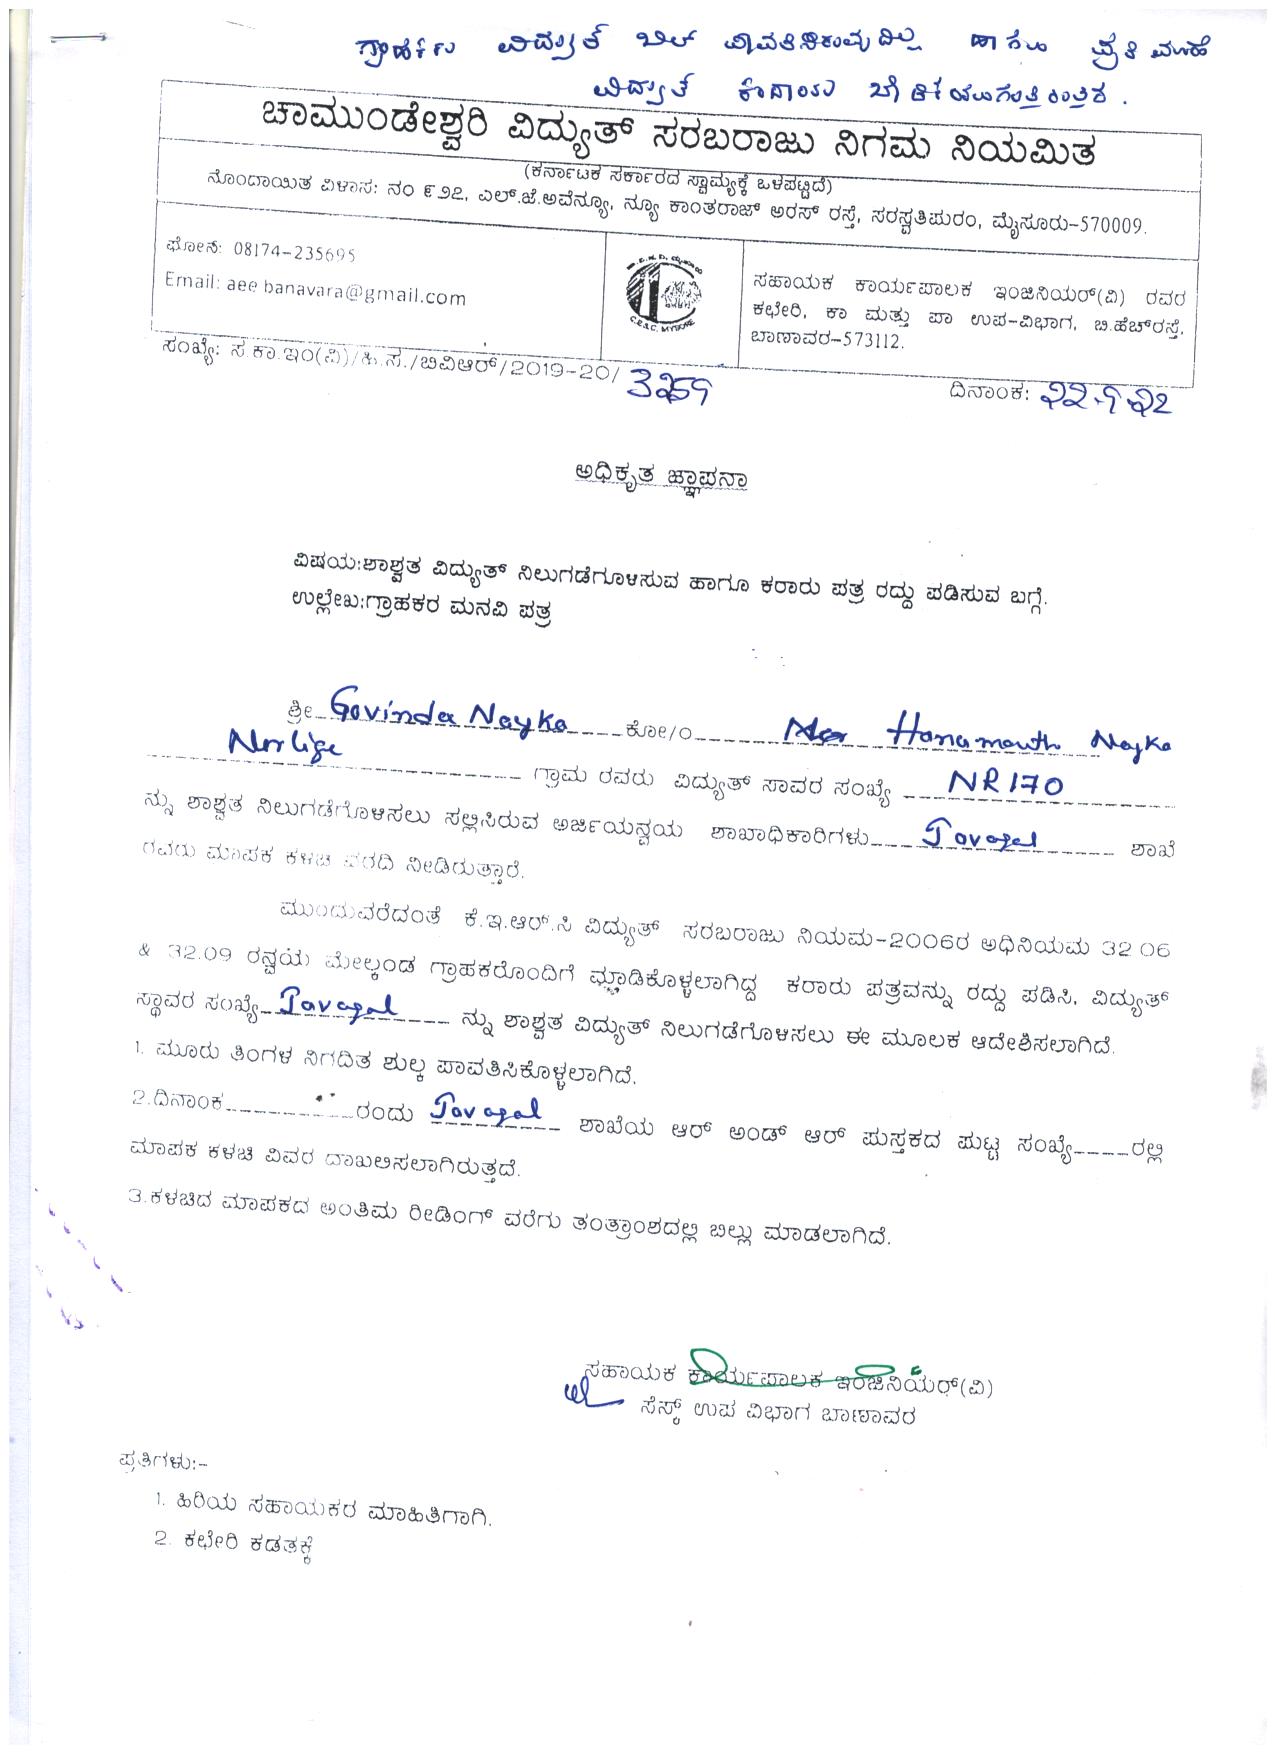 ಗ್ರಾಹಕರು ವಿದ್ಯುತ್ ಬಿಲ್ ಪಾವತಿಸಿರುವುದಿಲ್ಲ ಹಾಗೂ ಪ್ರತಿ ಮಾಹೆ
ವಿದ್ಯುತ್ ಕಂದಾಯ
ಚಾಮುಂಡೇಶ್ವರಿ ವಿದ್ಯುತ್ ಸರಬರಾಜು ನಿಗಮ ನಿಯಮಿತ
(ಕರ್ನಾಟಕ ಸರ್ಕಾರದ ಸ್ವಾಮ್ಯಕ್ಕೆ ಒಳಪಟ್ಟಿದೆ)
ನೊಂದಾಯಿತ ವಿಳಾಸ: ನಂ ೯೨೭, ಎಲ್.ಜೆ.ಅವೆನ್ಯೂ, ನ್ಯೂ ಕಾಂತರಾಜ್ ಅರಸ್ ರಸ್ತೆ, ಸರಸ್ವತಿಪುರಂ, ಮೈಸೂರು-570009.
ಫೋನ: 08174-235695
Email: aee banavara@gmail.com
C.E.S.C. MYSORE
ಸಹಾಯಕ ಕಾರ್ಯಪಾಲಕ ಇಂಜಿನಿಯರ್(ವಿ) ರವರ
ಕಛೇರಿ, ಕಾ ಮತ್ತು ಪಾ ಉಪ-ವಿಭಾಗ, ಬಿ.ಹೆಚ್‌ರಸ್ತೆ,
ಬಾಣಾವರ-573112.
ಸಂಖ್ಯೆ: ಸ.ಕಾ.ಇಂ(ವಿ)/ಹಿ.ಸ./ಬಿವಿಆರ್/2019-20/ 3259
ದಿನಾಂಕ: 22.9.22
ಅಧಿಕೃತ ಜ್ಞಾಪನಾ
ವಿಷಯ:ಶಾಶ್ವತ ವಿದ್ಯುತ್ ನಿಲುಗಡೆಗೊಳಿಸುವ ಹಾಗೂ ಕರಾರು ಪತ್ರ ರದ್ದು ಪಡಿಸುವ ಬಗ್ಗೆ.
ಉಲ್ಲೇಖ:ಗ್ರಾಹಕರ ಮನವಿ ಪತ್ರ
ಶ್ರೀ Govinda Nayka ಕೋ/ಂ Hanamanth Nayka
Norlige ಗ್ರಾಮ ರವರು ವಿದ್ಯುತ್ ಸಾವರ ಸಂಖ್ಯೆ NR170
ನ್ನು ಶಾಶ್ವತ ನಿಲುಗಡೆಗೊಳಿಸಲು ಸಲ್ಲಿಸಿರುವ ಅರ್ಜಿಯನ್ವಯ ಶಾಖಾಧಿಕಾರಿಗಳು Javagal ಶಾಖೆ
ರವರು ಮಾಪಕ ಕಳಚಿ ವರದಿ ನೀಡಿರುತ್ತಾರೆ.
ಮುಂದುವರೆದಂತೆ ಕೆ.ಇ.ಆರ್.ಸಿ ವಿದ್ಯುತ್ ಸರಬರಾಜು ನಿಯಮ-2006ರ ಅಧಿನಿಯಮ 32.06
& 32.09 ರನ್ವಯ ಮೇಲ್ಕಂಡ ಗ್ರಾಹಕರೊಂದಿಗೆ ಮ್ಡಾಡಿಕೊಳ್ಳಲಾಗಿದ್ದ ಕರಾರು ಪತ್ರವನ್ನು ರದ್ದು ಪಡಿಸಿ, ವಿದ್ಯುತ್
ಸ್ಥಾವರ ಸಂಖ್ಯೆ Javagal ನ್ನು ಶಾಶ್ವತ ವಿದ್ಯುತ್ ನಿಲುಗಡೆಗೊಳಿಸಲು ಈ ಮೂಲಕ ಆದೇಶಿಸಲಾಗಿದೆ.
1. ಮೂರು ತಿಂಗಳ ನಿಗದಿತ ಶುಲ್ಕ ಪಾವತಿಸಿಕೊಳ್ಳಲಾಗಿದೆ.
2.ದಿನಾಂಕ____________ರಂದು Javagal ಶಾಖೆಯ ಆರ್ ಅಂಡ್ ಆರ್ ಪುಸ್ತಕದ ಪುಟ್ಟ ಸಂಖ್ಯೆ____ರಲ್ಲಿ
ಮಾಪಕ ಕಳಚಿ ವಿವರ ದಾಖಲಿಸಲಾಗಿರುತ್ತದೆ.
3.ಕಳಚಿದ ಮಾಪಕದ ಅಂತಿಮ ರೀಡಿಂಗ್ ವರೆಗು ತಂತ್ರಾಂಶದಲ್ಲಿ ಬಿಲ್ಲು ಮಾಡಲಾಗಿದೆ.
ಸಹಾಯಕ ಕಾರ್ಯಪಾಲಕ ಇಂಜಿನಿಯರ್(ವಿ)
ಸೆಸ್ಕ್ ಉಪ ವಿಭಾಗ ಬಾಣಾವರ
ಪ್ರತಿಗಳು:-
1. ಹಿರಿಯ ಸಹಾಯಕರ ಮಾಹಿತಿಗಾಗಿ.
2. ಕಛೇರಿ ಕಡತಕ್ಕೆ